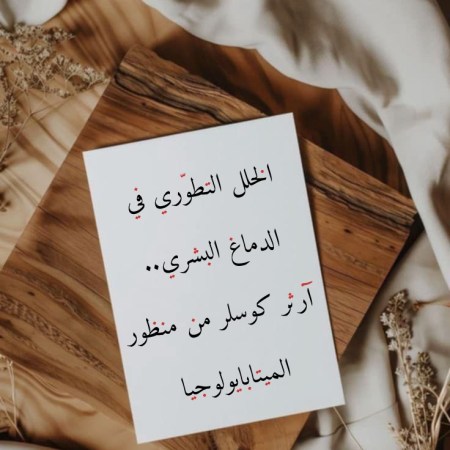 الخلل التطوّري في
الدماغ البشري..
آرثر كوسلر من منظور
الميتابايولوجيا